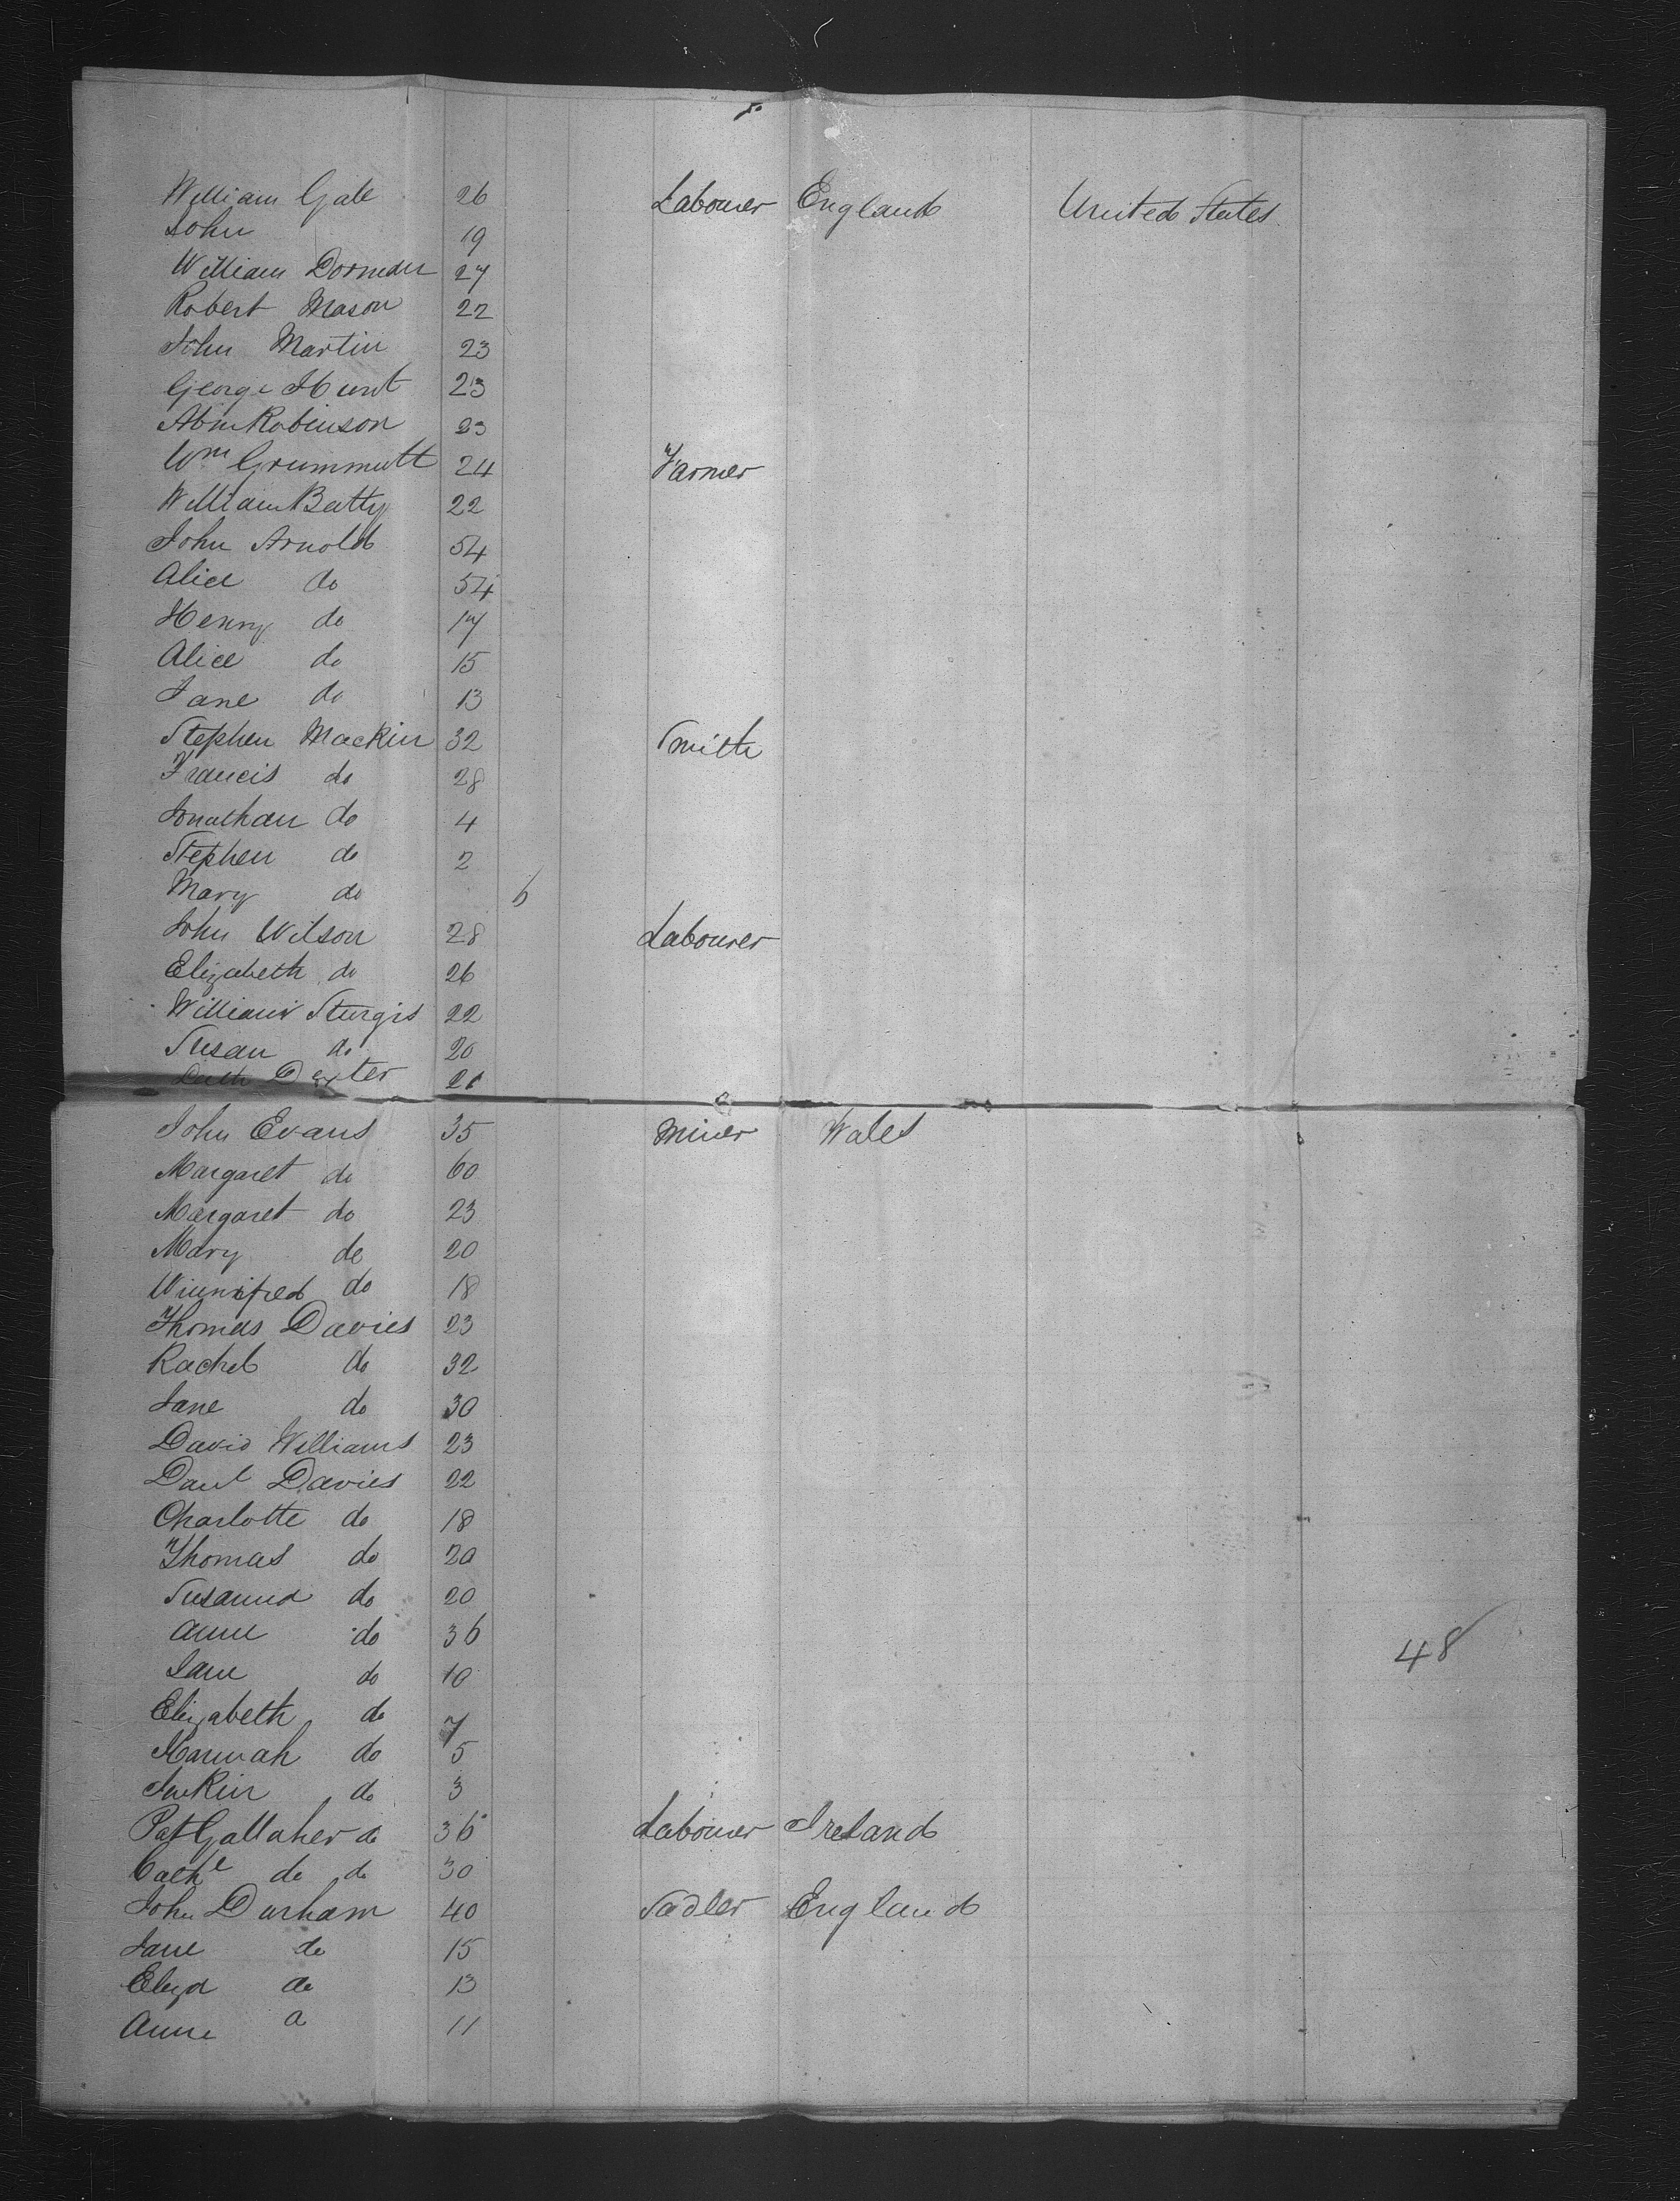 William Gale 26 Labourer England United States
John 19
William Dorman 27
Robert Mason 22
John Martin 23
George Hunt 23
Abm Robinson 23
Wm Grummutt 24 Farmer
William Batty 22
John Arnold 54
Alice do 54
Henry do 17
Alice do 15
Jane do 13
Stephen Mackin 32 Smith
Francis do 28
Jonathan do 4
Stephen do 2
Mary do 6
John Wilson 28 Labourer
Elizabeth do 26
William Sturgis 22
Susan do 20
Dexter 21
John Evans 35 Miner Wales
Margaret do 60
Margaret do 23
Mary do 20
Winnifred do 18
Thomas Davies 23
Rachel do 32
Jane do 30
David Williams 23
Danl Davies 22
Charlotte do 18
Thomas do 20
Susanna do 20
Anne do 36
Jane do 10
48
Elizabeth do 7
Hannah do 5
Jenkin do 3
Pat Gallaher do 36 Labourer Ireland
Cathe do do 30
John Durham 40 Sadler England
Jane do 15
Eliza do 13
Anne do 11